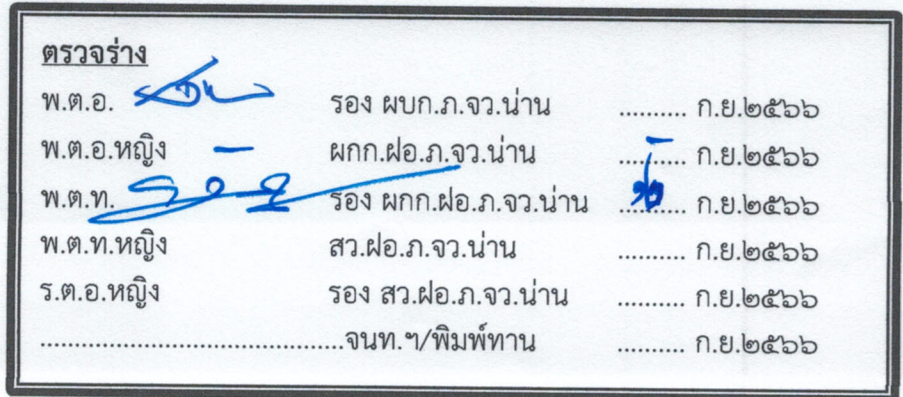 ตรวจร่าง
พ.ต.อ. รอง ผบก.ภ.จว.น่าน .......... ก.ย.๒๕๖๖
พ.ต.อ.หญิง – ผกก.ฝอ.ภ.จว.น่าน .......... ก.ย.๒๕๖๖
พ.ต.ท. รอง ผกก.ฝอ.ภ.จว.น่าน .......... ก.ย.๒๕๖๖
พ.ต.ท.หญิง สว.ฝอ.ภ.จว.น่าน .......... ก.ย.๒๕๖๖
ร.ต.อ.หญิง รอง สว.ฝอ.ภ.จว.น่าน .......... ก.ย.๒๕๖๖
..............................................จนท.ฯ/พิมพ์ทาน .......... ก.ย.๒๕๖๖